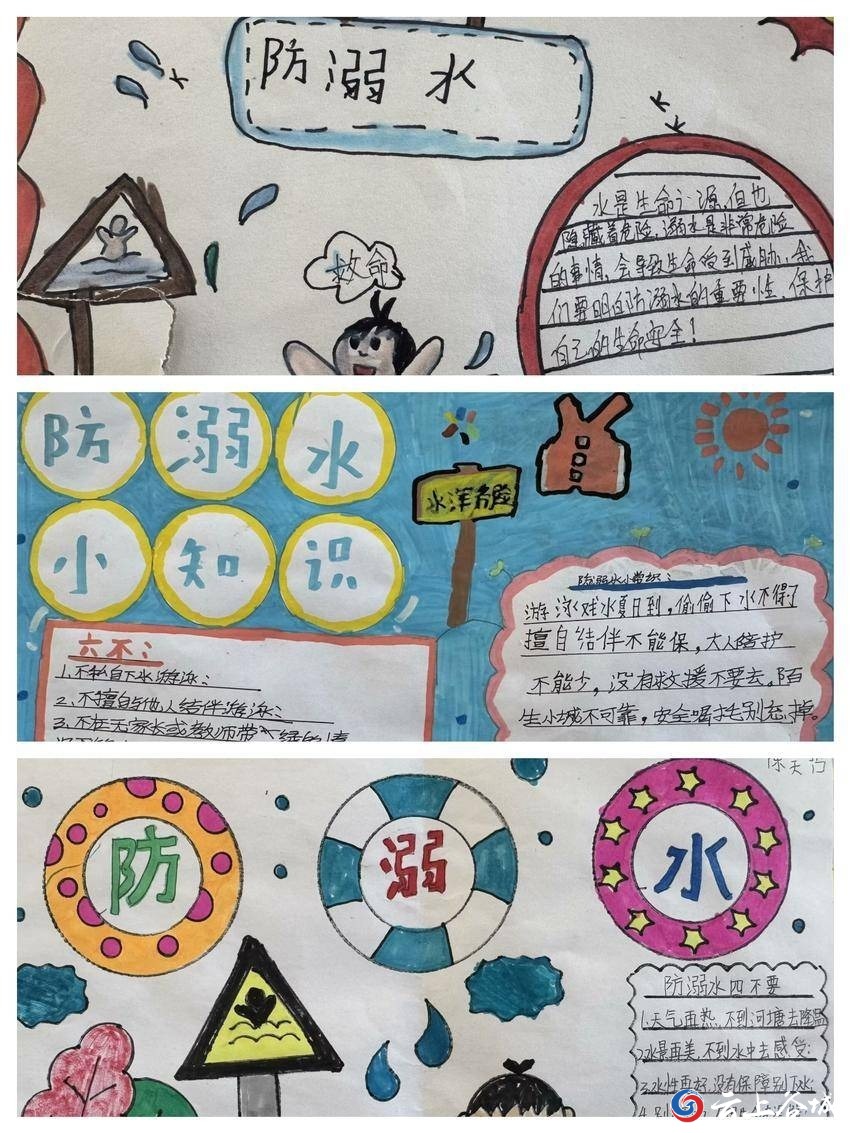 防溺水
救命
水是生命之源,但也
隐藏着危险,溺水是非常危险
的事情,会导致生命受到威胁,我
们要明白防溺水的重要性、保护
自己的生命安全!
防溺水
小知识
水深危险
六不:
1.不私自下水游泳;
2.不擅自与他人结伴游泳;
3.不在无家长或教师带
防溺水小常识:
游泳戏水夏日到,偷偷下水不得了
擅自结伴不能保,大人陪护
不能少,没有救援不要去,陌
生水域不可靠,安全
别忘掉。
防溺水
防溺水四不要
1.天气再热,不到河塘去降温
2.水景再美,不到水中去感受;
3.水性再好,没有保障别下水
4.别
云上
城